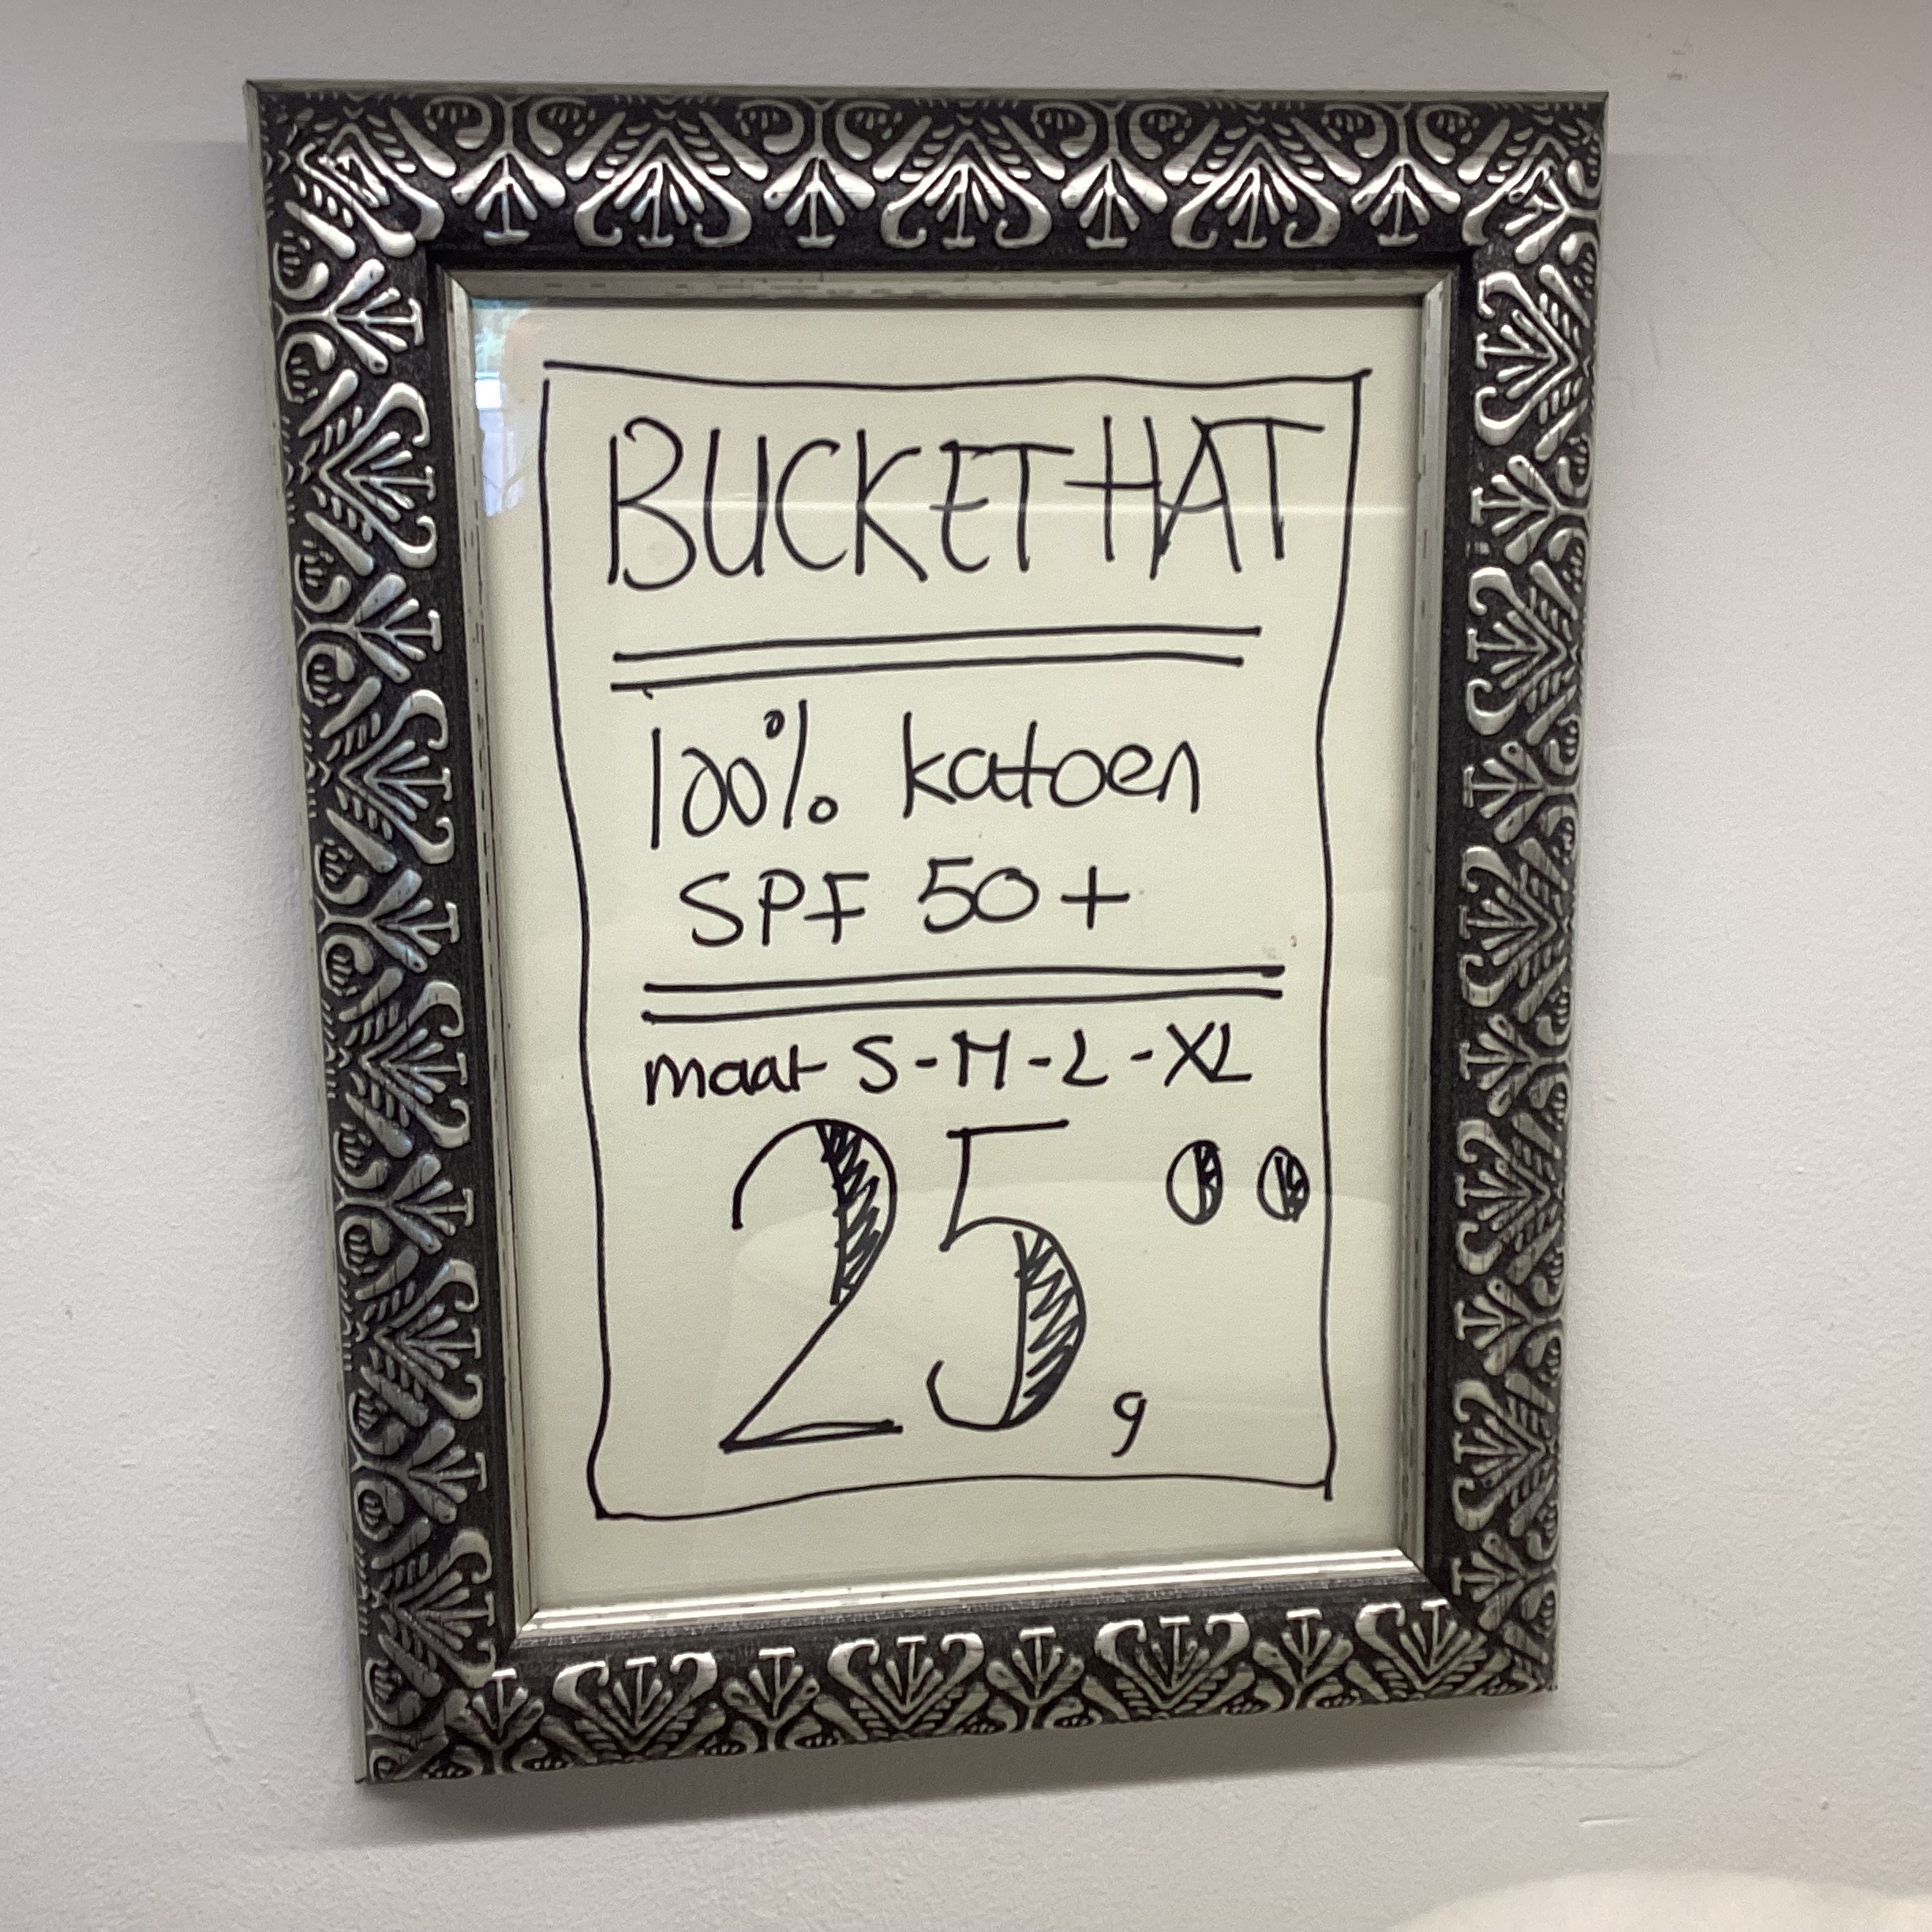 BUCKET HAT
100% katoen
SPF 50+
maat S-M-L-XL
25,00